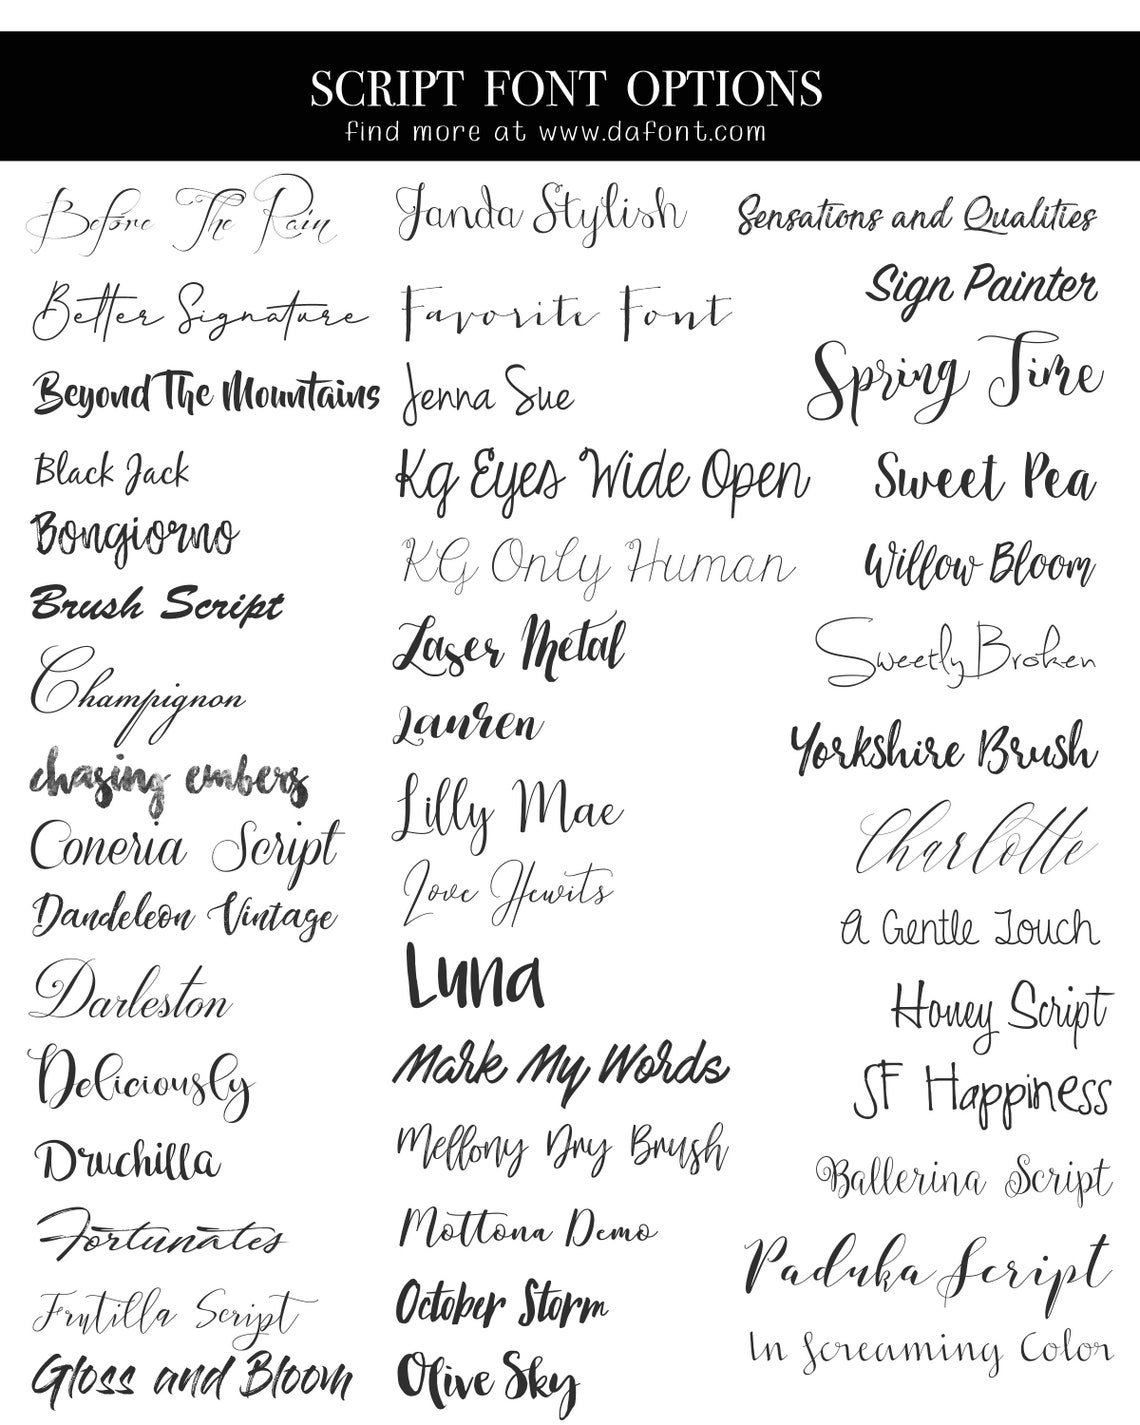 SCRIPT FONT OPTIONS
find more at www.dafont.com
Before The Rain
Better Signature
Beyond The Mountains
Black Jack
Bongiorno
Brush Script
Champignon
chasing embers
Coneria Script
Dandeleon Vintage
Darleston
Deliciously
Druchilla
Fortunates
Frutilla Script
Gloss and Bloom
Janda Stylish
Favorite Font
Jenna Sue
Kg Eyes Wide Open
KG Only Human
Laser Metal
Lauren
Lilly Mae
Love Hewits
Luna
Mark My Words
Mellony Dry Brush
Mottona Demo
October Storm
Olive Sky
Sensations and Qualities
Sign Painter
Spring Time
Sweet Pea
Willow Bloom
Sweetly Broken
Yorkshire Brush
Charlotte
A Gentle Touch
Honey Script
SF Happiness
Ballerina Script
Paduka Script
In Screaming Color